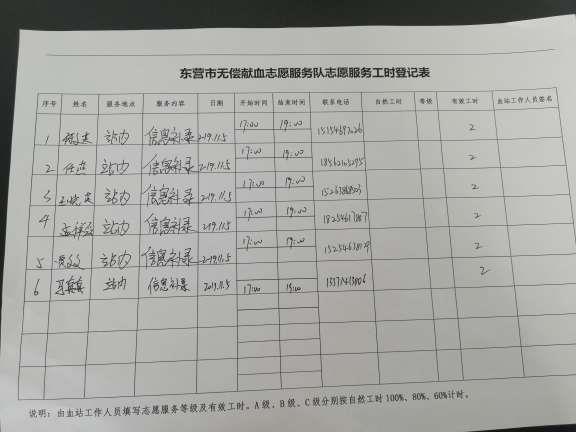 东营市无偿献血志愿服务队志愿服务工时登记表
序号 姓名 服务地点 服务内容 日期 开始时间 结束时间 联系电话 自然工时 等级 有效工时 血站工作人员签名
1 站内 信息补录 2019.11.5 17:00 19:00 2
2 任杰 站内 信息补录 2019.11.5 17:00 19:00 2
3 站内 信息补录 2019.11.5 17:00 19:00 2
4 站内 信息补录 2019.11.5 17:00 19:00 2
5 站内 信息补录 2019.11.5 17:00 19:00 2
6 站内 信息补录 2019.11.5 17:00 19:00 2
说明：由血站工作人员填写志愿服务等级及有效工时。A级、B级、C级分别按自然工时100%、80%、60%计时。